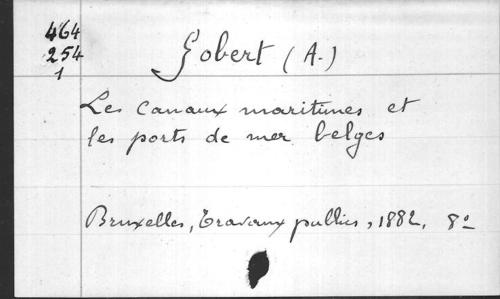 464
254
1
Gobert (A.)
Les canaux maritimes et
les ports de mer belges
Bruxelles, Travaux publics, 1882, 8º